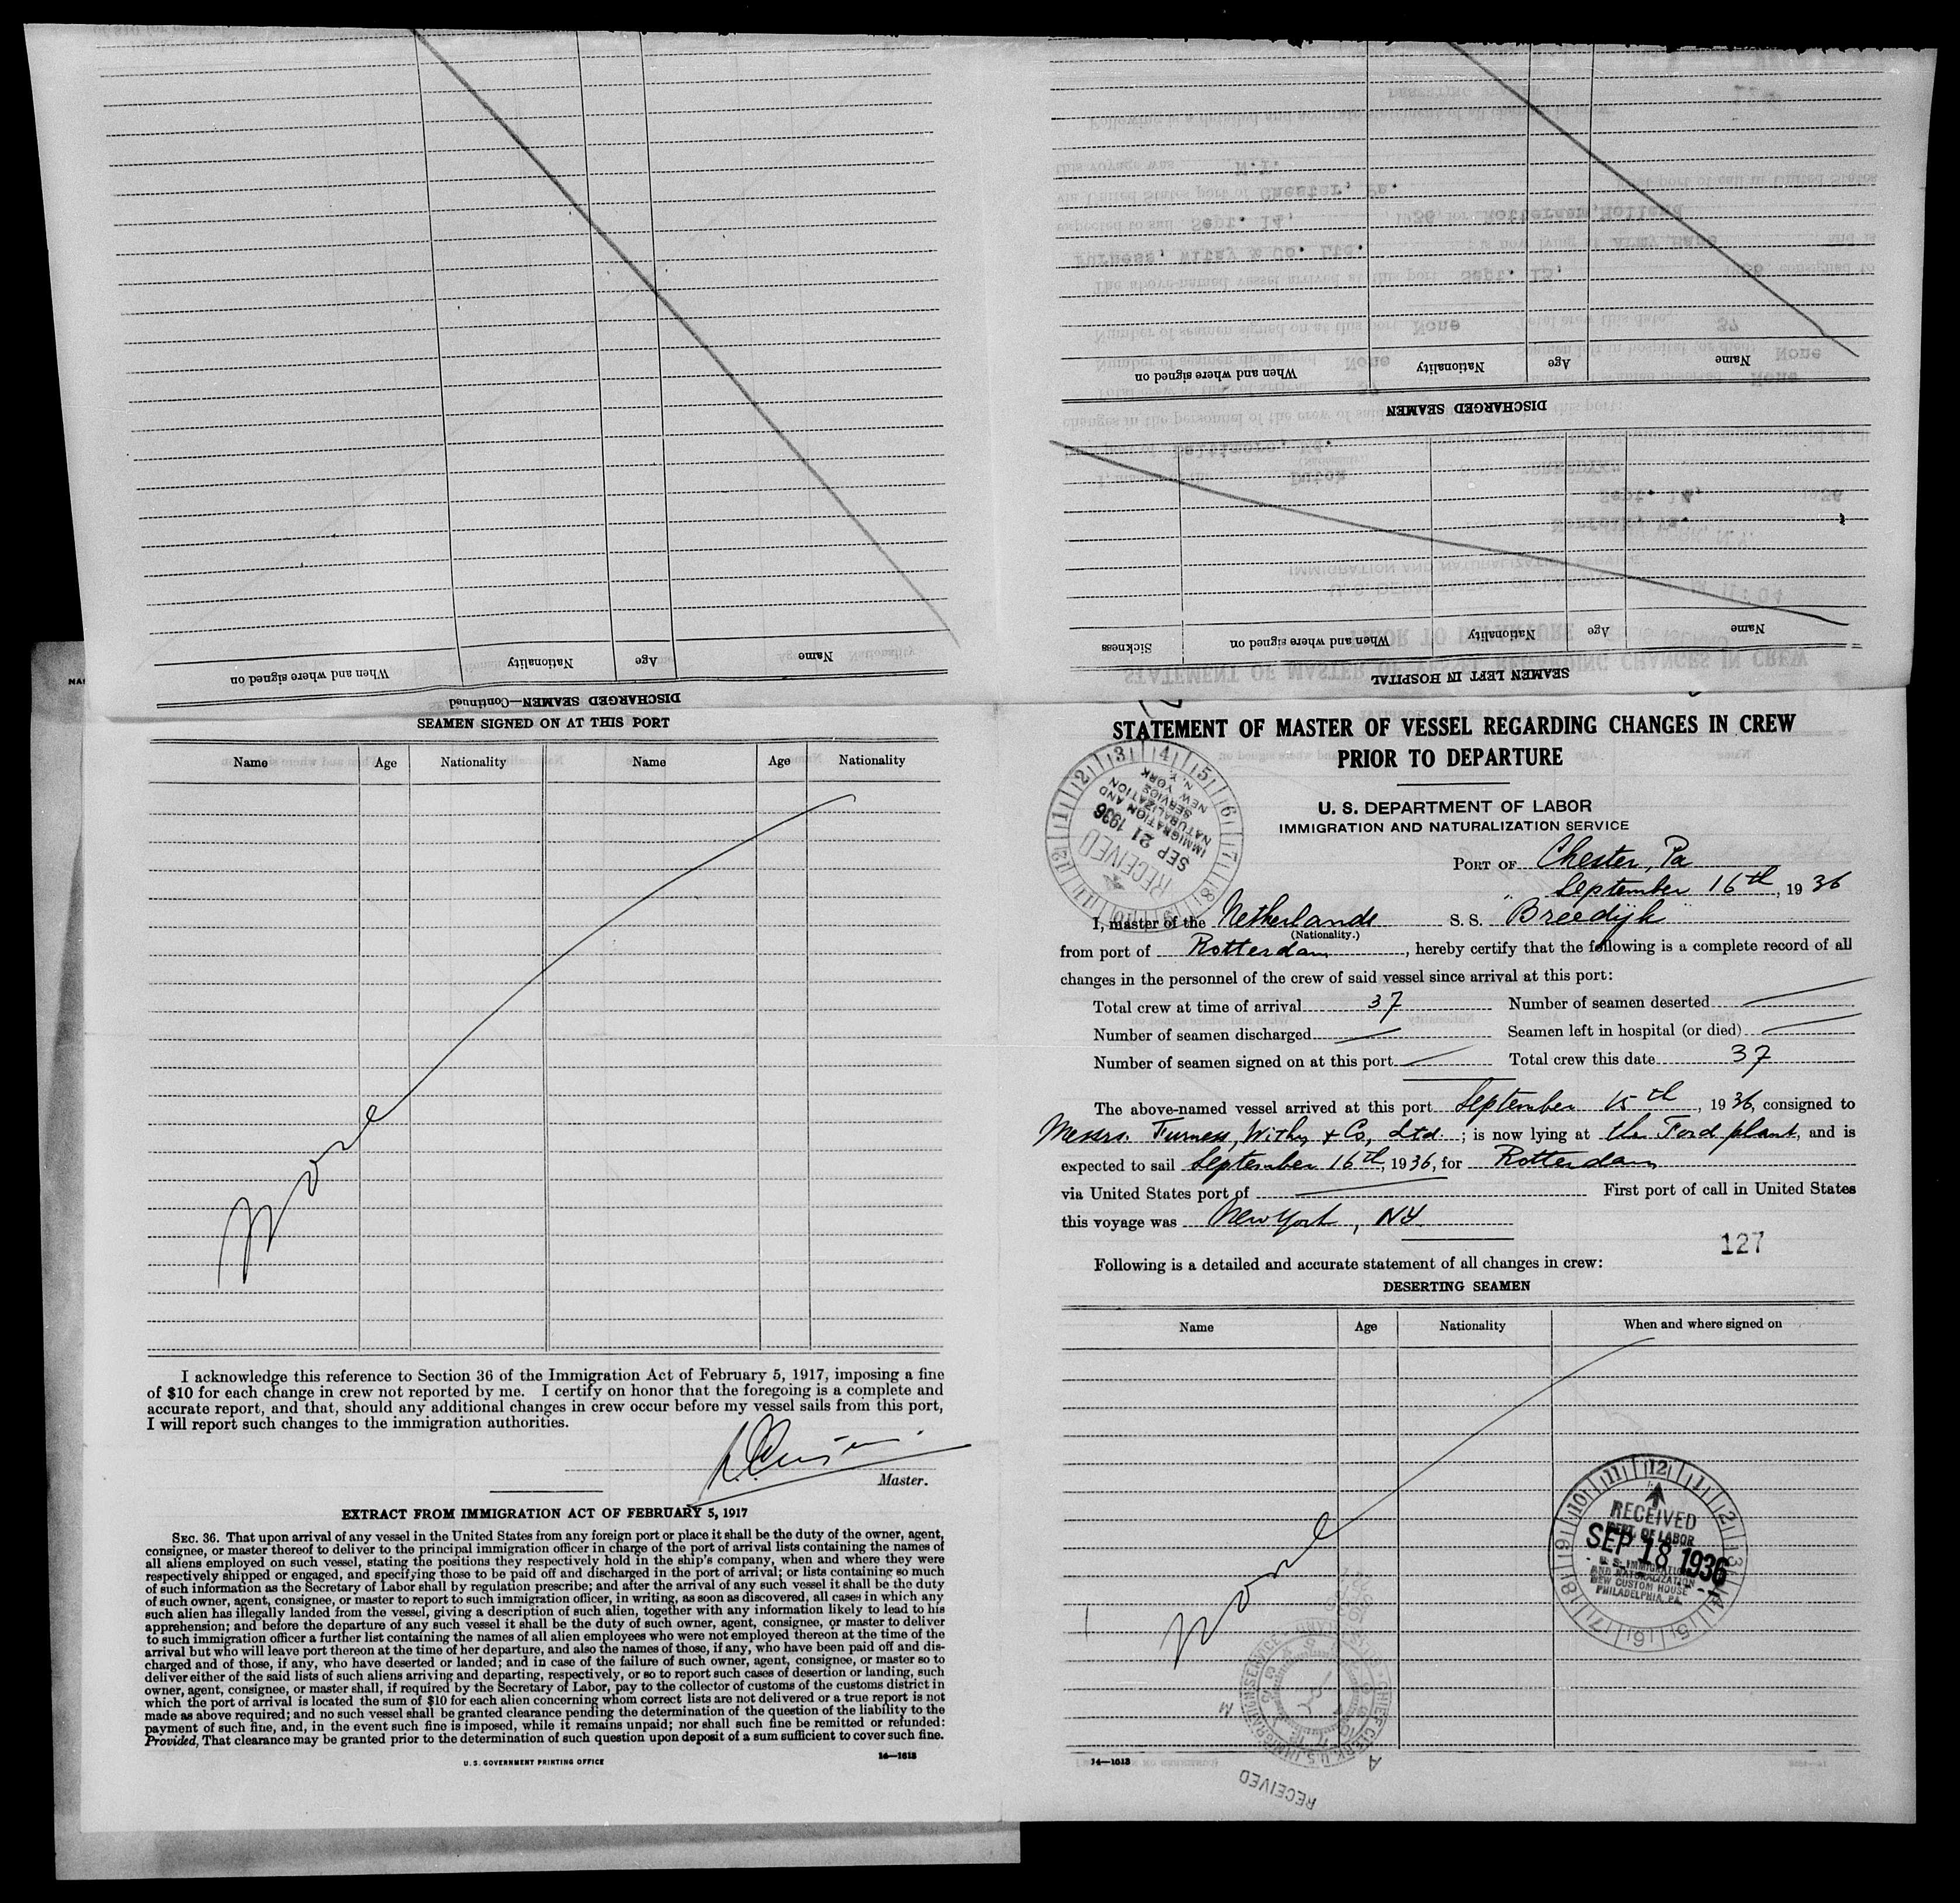 DISCHARGED SEAMEN—Continued
Name Age Nationality When and where signed on
SEAMEN LEFT IN HOSPITAL
Name Age Nationality When and where signed on Sickness
DISCHARGED SEAMEN
Name Age Nationality When and where signed on
SEAMEN SIGNED ON AT THIS PORT
Name Age Nationality Name Age Nationality
None
I acknowledge this reference to Section 36 of the Immigration Act of February 5, 1917, imposing a fine
of $10 for each change in crew not reported by me. I certify on honor that the foregoing is a complete and
accurate report, and that, should any additional changes in crew occur before my vessel sails from this port,
I will report such changes to the immigration authorities.
Master.
EXTRACT FROM IMMIGRATION ACT OF FEBRUARY 5, 1917
SEC. 36. That upon arrival of any vessel in the United States from any foreign port or place it shall be the duty of the owner, agent,
consignee, or master thereof to deliver to the principal immigration officer in charge of the port of arrival lists containing the names of
all aliens employed on such vessel, stating the positions they respectively hold in the ship's company, when and where they were
respectively shipped or engaged, and specifying those to be paid off and discharged in the port of arrival; or lists containing so much
of such information as the Secretary of Labor shall by regulation prescribe; and after the arrival of any such vessel it shall be the duty
of such owner, agent, consignee, or master to report to such immigration officer, in writing, as soon as discovered, all cases in which any
such alien has illegally landed from the vessel, giving a description of such alien, together with any information likely to lead to his
apprehension; and before the departure of any such vessel it shall be the duty of such owner, agent, consignee, or master to deliver
to such immigration officer a further list containing the names of all alien employees who were not employed thereon at the time of the
arrival but who will leave port thereon at the time of her departure, and also the names of those, if any, who have been paid off and dis-
charged and of those, if any, who have deserted or landed; and in case of the failure of such owner, agent, consignee, or master so to
deliver either of the said lists of such aliens arriving and departing, respectively, or so to report such cases of desertion or landing, such
owner, agent, consignee, or master shall, if required by the Secretary of Labor, pay to the collector of customs of the customs district in
which the port of arrival is located the sum of $10 for each alien concerning whom correct lists are not delivered or a true report is not
made as above required; and no such vessel shall be granted clearance pending the determination of the question of the liability to the
payment of such fine, and, in the event such fine is imposed, while it remains unpaid; nor shall such fine be remitted or refunded:
Provided, That clearance may be granted prior to the determination of such question upon deposit of a sum sufficient to cover such fine.
U. S. GOVERNMENT PRINTING OFFICE 14—1613
STATEMENT OF MASTER OF VESSEL REGARDING CHANGES IN CREW
PRIOR TO DEPARTURE
U. S. DEPARTMENT OF LABOR
IMMIGRATION AND NATURALIZATION SERVICE
RECEIVED
SEP 21 1936
IMMIGRATION AND
NATURALIZATION
SERVICE
NEW YORK
N. Y.
PORT OF Chester, Pa
September 16th, 1936
I, master of the Netherlands S. S. "Breedijk"
(Nationality.)
from port of Rotterdam, hereby certify that the following is a complete record of all
changes in the personnel of the crew of said vessel since arrival at this port:
Total crew at time of arrival 37 Number of seamen deserted
Number of seamen discharged Seamen left in hospital (or died)
Number of seamen signed on at this port Total crew this date 37
The above-named vessel arrived at this port September 15th, 1936, consigned to
Messrs. Furness, Withy & Co, Ltd.; is now lying at the Ford plant, and is
expected to sail September 16th, 1936, for Rotterdam
via United States port of First port of call in United States
this voyage was New York, NY
127
Following is a detailed and accurate statement of all changes in crew:
DESERTING SEAMEN
Name Age Nationality When and where signed on
None
RECEIVED
DEPT. OF LABOR
SEP 18 1936
U. S. IMMIGRATION
AND NATURALIZATION
NEW CUSTOM HOUSE
PHILADELPHIA, PA.
CHIEF CLERK U.S. IMMIGRATION SERVICE
RECEIVED
14—1613